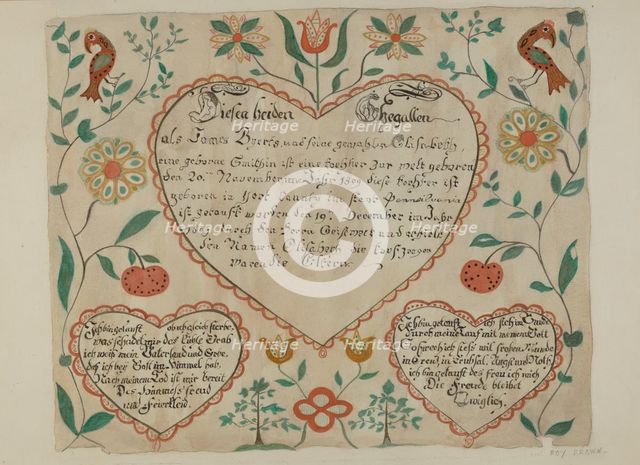 Diesen beiden Ehegatten
als James Byers und seine gemahlin Elisabeth
eine geborne Smithin ist eine tochter zur welt geboren
den 20. November im Jahr 1809 diese tochter ist
geboren in York County im staat Pennsilvania
ist getauft worden den 19. December im Jahr
den Herrn
den Namen Elisabeth die taufzeugen
waren die Eltern
Ich bin getauft ob ich gleich sterbe
was schadet mir das kühle Grab
ich weis mein Vaterland und Erbe
das ich bey Gott im Himmel hab
Nach meinem Tod ist mir bereit
Des Himmels freud
und Feierkleid.
Ich bin getauft ich steh im Bunde
durch meine Tauf mit meinem Gott
so sprech ich stets mit frohem Munde
in Creutz, in Trübsal, Angst und Noth
ich bin getauft des freu ich mich
Die Freude bleibet
Ewiglich.
Heritage
Heritage
Heritage
Heritage
Heritage
Heritage
©
ROY BROWN